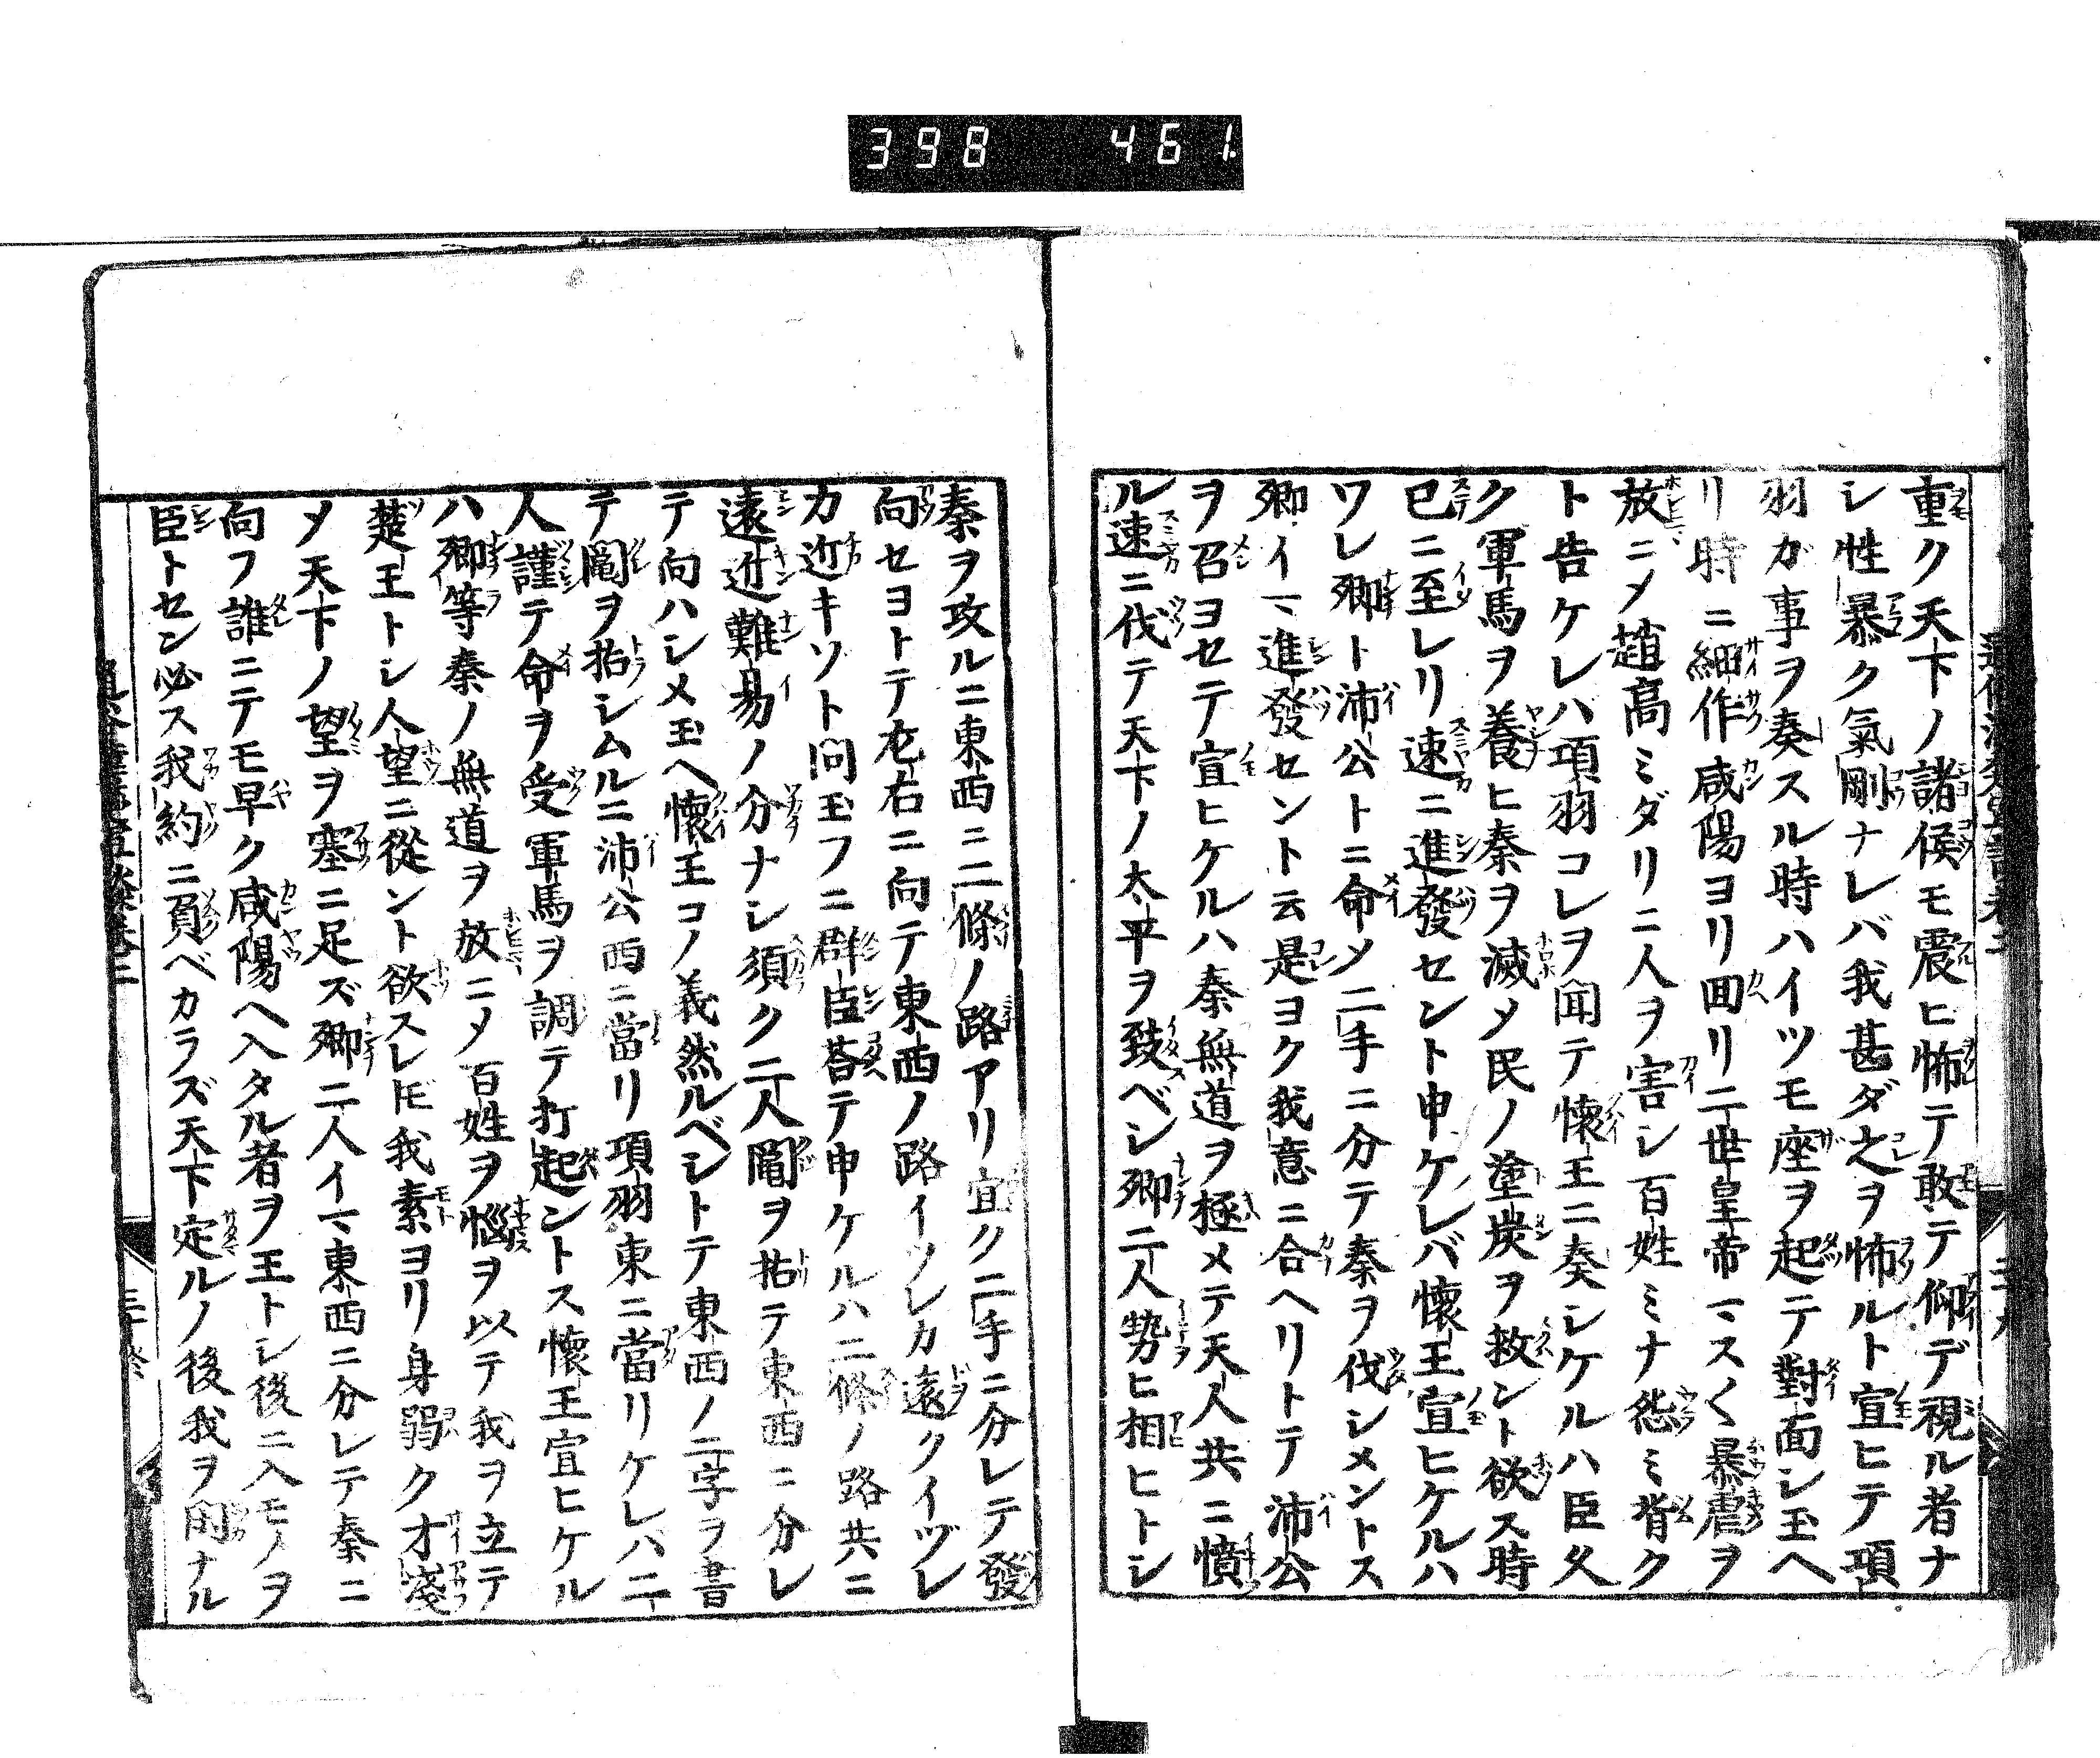 398 461
重ク天下ノ諸侯モ震ヒ怖テ敢テ仰デ視ル者ナ
シ性暴ク氣剛ナレバ我甚ダ之ヲ怖ルト宣ヒテ項
羽ガ事ヲ奏スル時ハイツモ座ヲ起テ對面シ玉ヘ
リ時ニ細作咸陽ヨリ回リ二世皇帝マスく暴虐ヲ
放ニメ趙高ミダリニ人ヲ害シ百姓ミナ怨ミ背ク
ト告ケレバ項羽コレヲ聞テ懷王ニ奏シケルハ臣久
ク軍馬ヲ養ヒ秦ヲ滅メ民ノ塗炭ヲ救ント欲ス時
已ニ至レリ速ニ進發セント申ケレバ懷王宣ヒケルハ
ワレ卿ト沛公トニ命メ二手ニ分テ秦ヲ伐シメントス
卿イマ進發セント云是ヨク我意ニ合ヘリトテ沛公
ヲ召ヨセテ宣ヒケルハ秦無道ヲ極メテ天人共ニ憤
ル速ニ伐テ天下ノ太平ヲ致ベシ卿二人勢ヒ相ヒトシ
秦ヲ攻ルニ東西ニ二條ノ路アリ宜ク二手ニ分レテ發
向セヨトテ左右ニ向テ東西ノ路イツレカ遠クイヅレ
カ近キソト問玉フニ群臣荅テ申ケルハ二條ノ路共ニ
遠近難易ノ分ナシ須ク二人鬮ヲ拈テ東西ニ分レ
テ向ハシメ玉ヘ懷王コノ義然ルベシトテ東西ノ二字ヲ書
テ鬮ヲ拈シムルニ沛公西ニ當リ項羽東ニ當リケレバ二
人謹テ命ヲ受軍馬ヲ調テ打起ントス懷王宣ヒケル
ハ卿等秦ノ無道ヲ放ニメ百姓ヲ惱ヲ以テ我ヲ立テ
楚王トシ人望ニ從ント欲スレ𪜈我素ヨリ身弱ク才淺
メ天下ノ望ヲ塞ニ足ズ卿二人イマ東西ニ分レテ秦ニ
向フ誰ニテモ早ク咸陽ヘ入タル者ヲ王トシ後ニ入モノヲ
臣トセン必ス我約ニ負ベカラズ天下定ルノ後我ヲ閑ナル